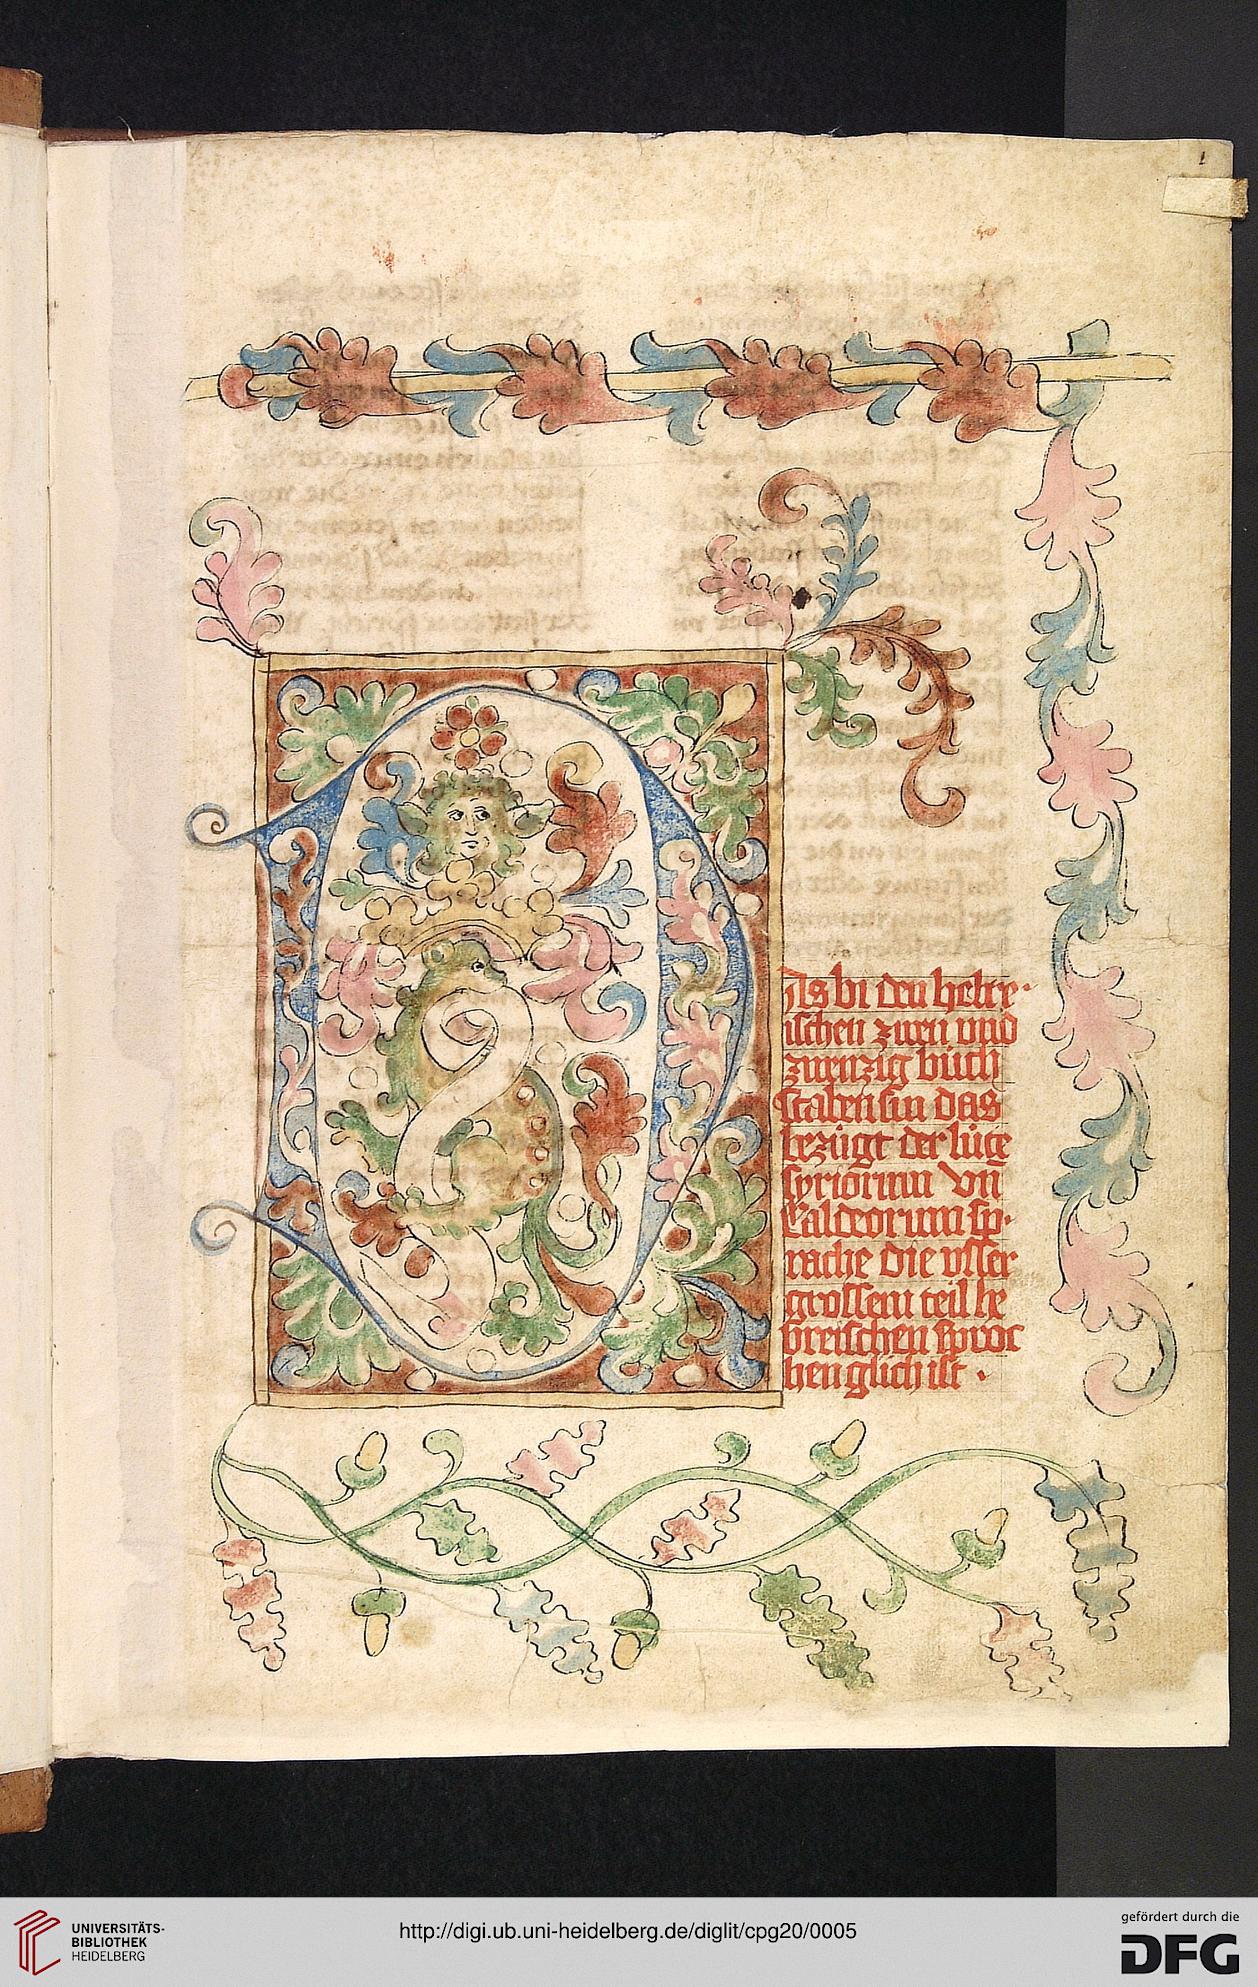 1
DAs bi den hebre·
ischen zwen und
zwenzig büch
staben sin das
bezügt der lüte
syriorum vn̄
kaldeorum sp·
rache die vsser
grossem teil he
breischen sproc
hen glich ist ·
UNIVERSITÄTS-
BIBLIOTHEK
HEIDELBERG
http://digi.ub.uni-heidelberg.de/diglit/cpg20/0005
gefördert durch die
DFG